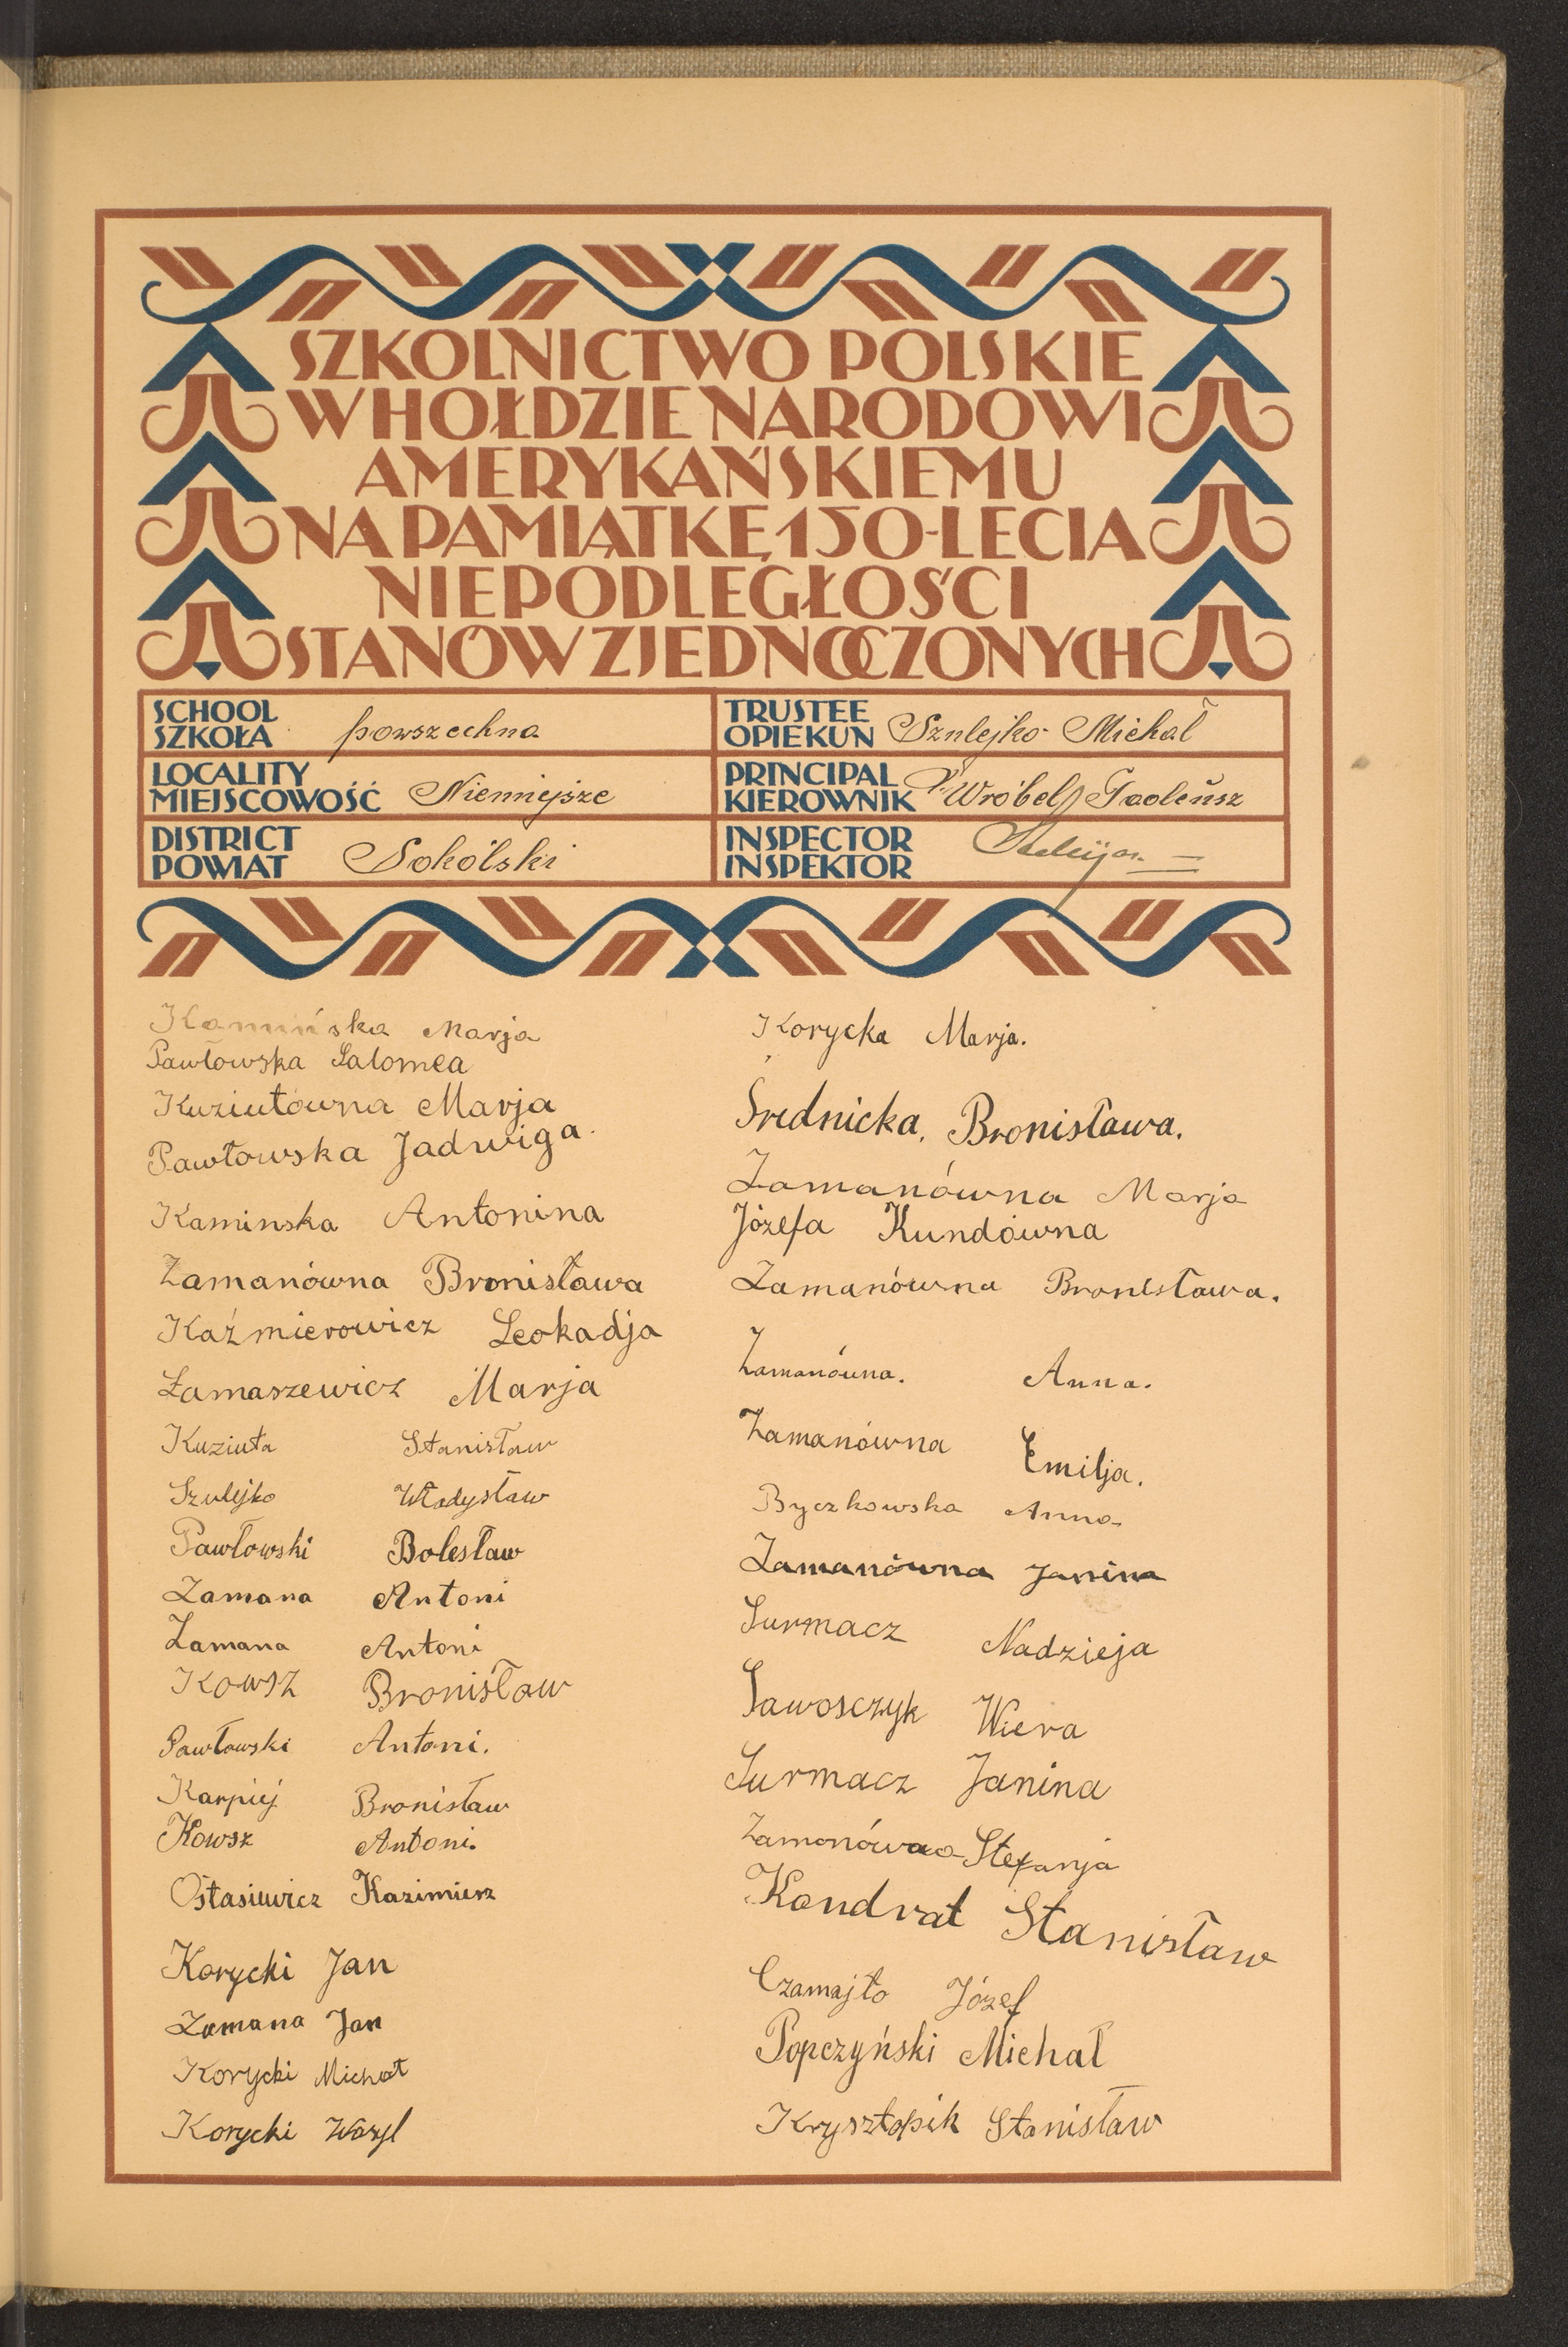 SZKOLNICTWO POLSKIE
W HOŁDZIE NARODOWI
AMERYKAŃSKIEMU
NA PAMIĄTKĘ 150-LECIA
NIEPODLEGŁOŚCI
STANÓW ZJEDNOCZONYCH
SCHOOL
SZKOŁA powszechna
TRUSTEE
OPIEKUN Sznlejko Michał
LOCALITY
MIEJSCOWOŚĆ Niemiejsze
PRINCIPAL
KIEROWNIK Wróbel Tadeusz
DISTRICT
POWIAT Sokólski
INSPECTOR
INSPEKTOR
Kamińska Marja
Pawłowska Salomea
Kuziutówna Marja
Pawłowska Jadwiga.
Kaminska Antonina
Zamanówna Bronisława
Kaźmierowicz Leokadja
Łamaszewicz Marja
Kuziuta Stanisław
Szulejko Władysław
Pawłowski Bolesław
Zamana Antoni
Zamana Antoni
Kowsz Bronisław
Pawłowski Antoni.
Karpiej Bronisław
Kowsz Antoni.
Ostasiewicz Kazimierz
Korycki Jan
Zamana Jan
Korycki Michał
Korycki Wazyl
Korycka Marja.
Średnicka, Bronisława.
Zamanówna Marja
Józefa Kundówna
Zamanówna Bronisława.
Zamanówna. Anna.
Zamanówna Emilja.
Byczkowska Anna
Zamanówna Janina
Surmacz Nadzieja
Sawosczyk Wiera
Surmacz Janina
Zamanówna Stefanja
Kondrat Stanisław
Czamajło Józef
Popczyński Michał
Krysztopik Stanisław